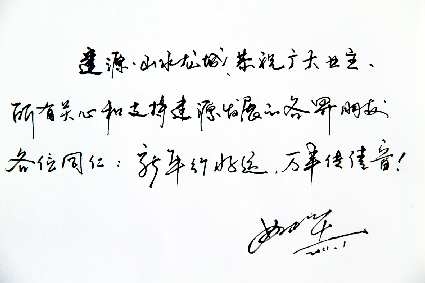 建源·山水龙城,恭祝广大业主、
所有关心和支持建源发展的各界朋友
各位同仁:新年行好运,万事传佳音!
2011.1